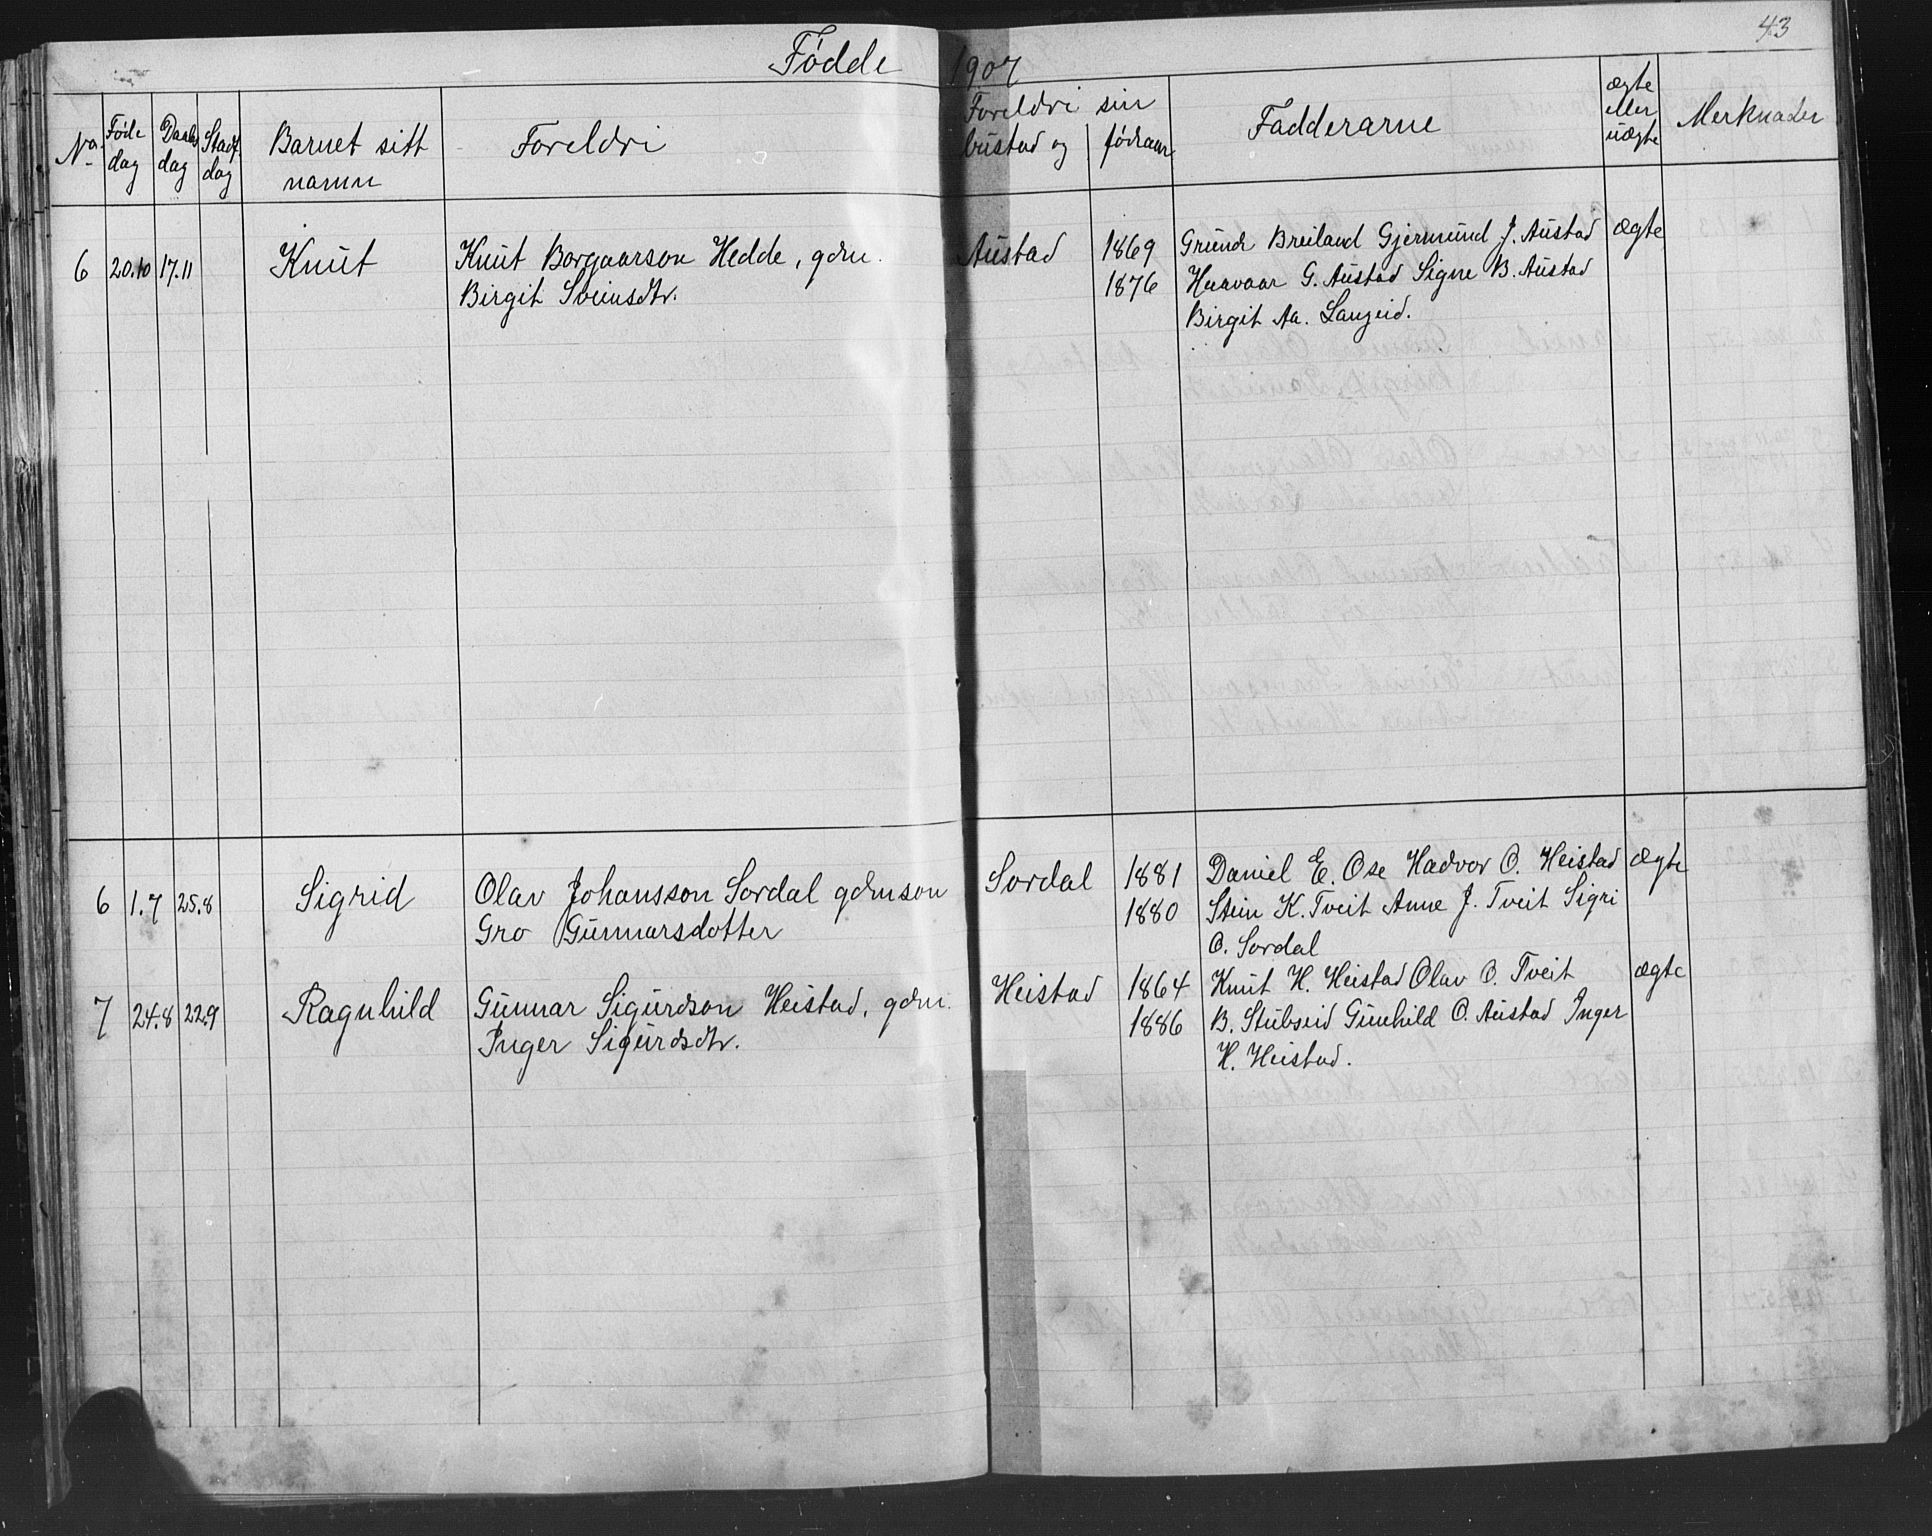 43
Fødde 1907
No. Føde dag Daabs dag Stadf. dag Barnet sitt namn Foreldri Foreldri sin bustad og fødeaar Fadderarne ægte eller uægte Merknader
6 20.10 17.11 Knut Knut Borgaarson Hedde, gdm. Austad 1869 Grunde Breiland Gjermund J. Austad ægte
Birgit Sveinsdtr. 1876 Haavaar G. Austad Signe B. Austad
Birgit Aa. Langeid.
6 1.7 25.8 Sigrid Olav Johansson Sordal gdmson Sordal 1881 Daniel E. Ose Hadvor O. Heistad ægte
Gro Gunnarsdotter 1880 Stein K. Tveit Anne J. Tveit Sigri
O. Sordal
7 24.8 22.9 Ragnhild Gunnar Sigurdson Heistad, gdm. Heistad 1864 Knut H. Heistad Olav O. Tveit ægte
Inger Sigurdsdtr. 1886 B. Stubseid Gunhild O. Austad Inger
H. Heistad.